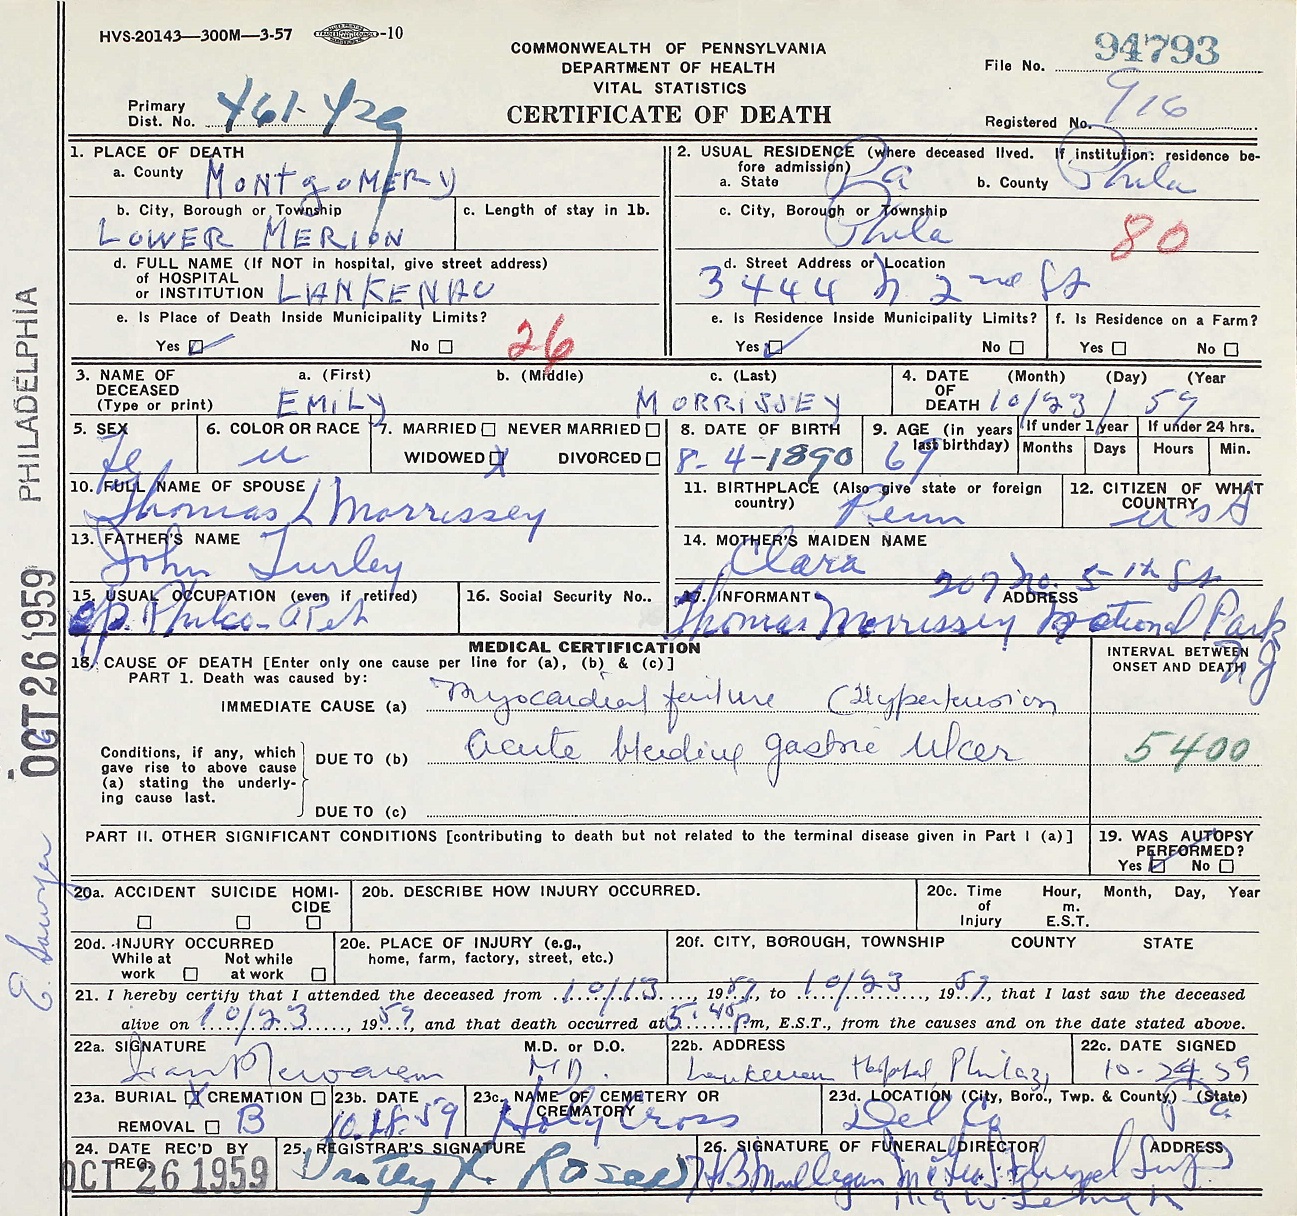 HVS-20143—300M—3-57 -10
COMMONWEALTH OF PENNSYLVANIA
DEPARTMENT OF HEALTH
VITAL STATISTICS
CERTIFICATE OF DEATH
File No. 94793
Primary Dist. No. 461-429
Registered No. 916
1. PLACE OF DEATH
a. County MONTGOMERY
b. City, Borough or Township LOWER MERION
c. Length of stay in 1b.
d. FULL NAME (If NOT in hospital, give street address) of HOSPITAL or INSTITUTION LANKENAU
e. Is Place of Death Inside Municipality Limits?
Yes No 26
2. USUAL RESIDENCE (where deceased lived. If institution: residence before admission)
a. State Pa b. County Phila
c. City, Borough or Township Phila 80
d. Street Address or Location 3444 N 2nd St
e. Is Residence Inside Municipality Limits?
Yes No
f. Is Residence on a Farm?
Yes No
3. NAME OF DECEASED (Type or print)
a. (First) b. (Middle) c. (Last)
EMILY MORRISSEY
4. DATE OF DEATH (Month) (Day) (Year
10/23/59
5. SEX Fe
6. COLOR OR RACE W
7. MARRIED NEVER MARRIED
WIDOWED X DIVORCED
8. DATE OF BIRTH 8-4-1890
9. AGE (in years last birthday) 69
If under 1 year If under 24 hrs.
Months Days Hours Min.
10. FULL NAME OF SPOUSE Thomas L Morrissey
11. BIRTHPLACE (Also give state or foreign country) Penn
12. CITIZEN OF WHAT COUNTRY USA
13. FATHER'S NAME John Turley
14. MOTHER'S MAIDEN NAME Clara
15. USUAL OCCUPATION (even if retired) Op. Philco - Ret
16. Social Security No..
17. INFORMANT ADDRESS
207 No. 5th St
Thomas Morrissey National Park
NJ
MEDICAL CERTIFICATION
18. CAUSE OF DEATH [Enter only one cause per line for (a), (b) & (c)]
PART 1. Death was caused by:
INTERVAL BETWEEN ONSET AND DEATH
IMMEDIATE CAUSE (a) Myocardial failure (Hypertension
Conditions, if any, which gave rise to above cause (a) stating the underlying cause last.
DUE TO (b) Acute bleeding gastric ulcer 5400
DUE TO (c)
PART II. OTHER SIGNIFICANT CONDITIONS [contributing to death but not related to the terminal disease given in Part I (a)]
19. WAS AUTOPSY PERFORMED?
Yes No
20a. ACCIDENT SUICIDE HOMICIDE
20b. DESCRIBE HOW INJURY OCCURRED.
20c. Time of Injury Hour, m. E.S.T. Month, Day, Year
20d. INJURY OCCURRED
While at work Not while at work
20e. PLACE OF INJURY (e.g., home, farm, factory, street, etc.)
20f. CITY, BOROUGH, TOWNSHIP COUNTY STATE
21. I hereby certify that I attended the deceased from 10/13, 1959, to 10/23, 1959, that I last saw the deceased
alive on 10/23, 1959, and that death occurred at 5:40 Pm, E.S.T., from the causes and on the date stated above.
22a. SIGNATURE M.D. or D.O.
M.D.
22b. ADDRESS Lankenau Hospital, Phila 31, Pa
22c. DATE SIGNED 10-24-59
23a. BURIAL X CREMATION
REMOVAL B
23b. DATE
23c. NAME OF CEMETERY OR CREMATORY Holy Cross
23d. LOCATION (City, Boro., Twp. & County) (State)
Del Co
24. DATE REC'D BY REG. OCT 26 1959
25. REGISTRAR'S SIGNATURE
26. SIGNATURE OF FUNERAL DIRECTOR ADDRESS
PHILADELPHIA
OCT 26 1959
E. Sawyer